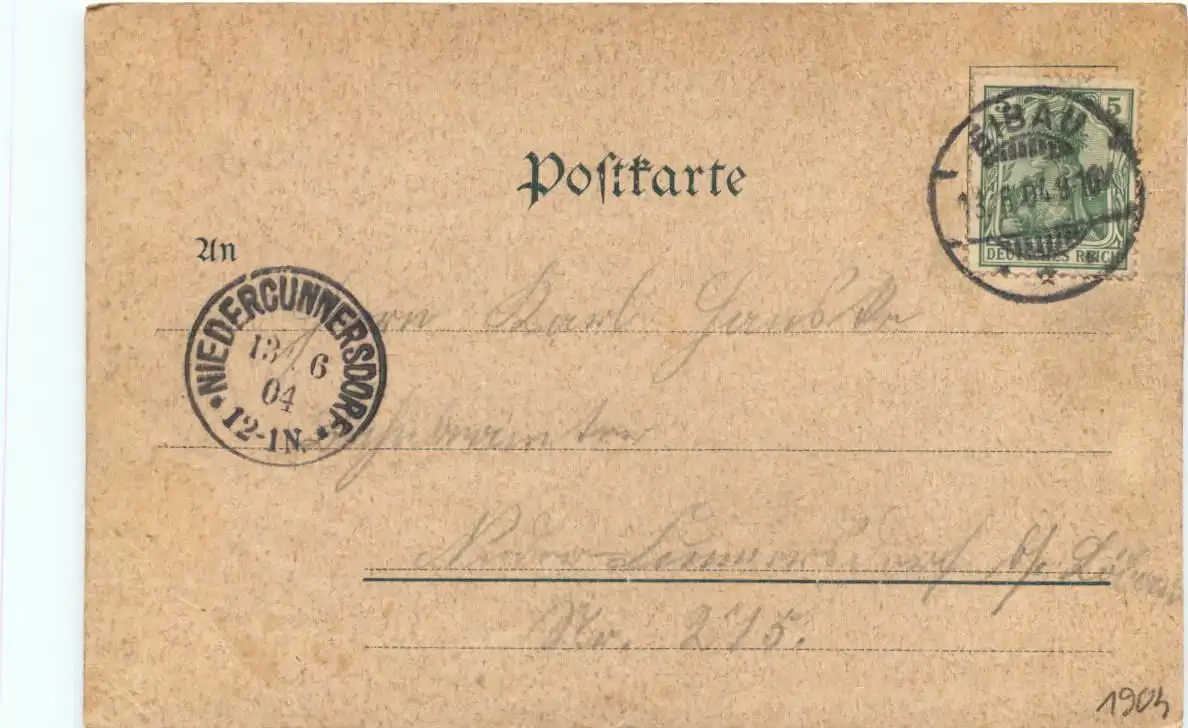 Postkarte
5
EIBAU
13. 6. 04. 8-10V
DEUTSCHES REICH
An
NIEDERCUNNERSDORF
13 / 6
04
* 12-1N. *
Herrn Karl
Nieder-Cunnersdorf b/
Nr. 275.
1904